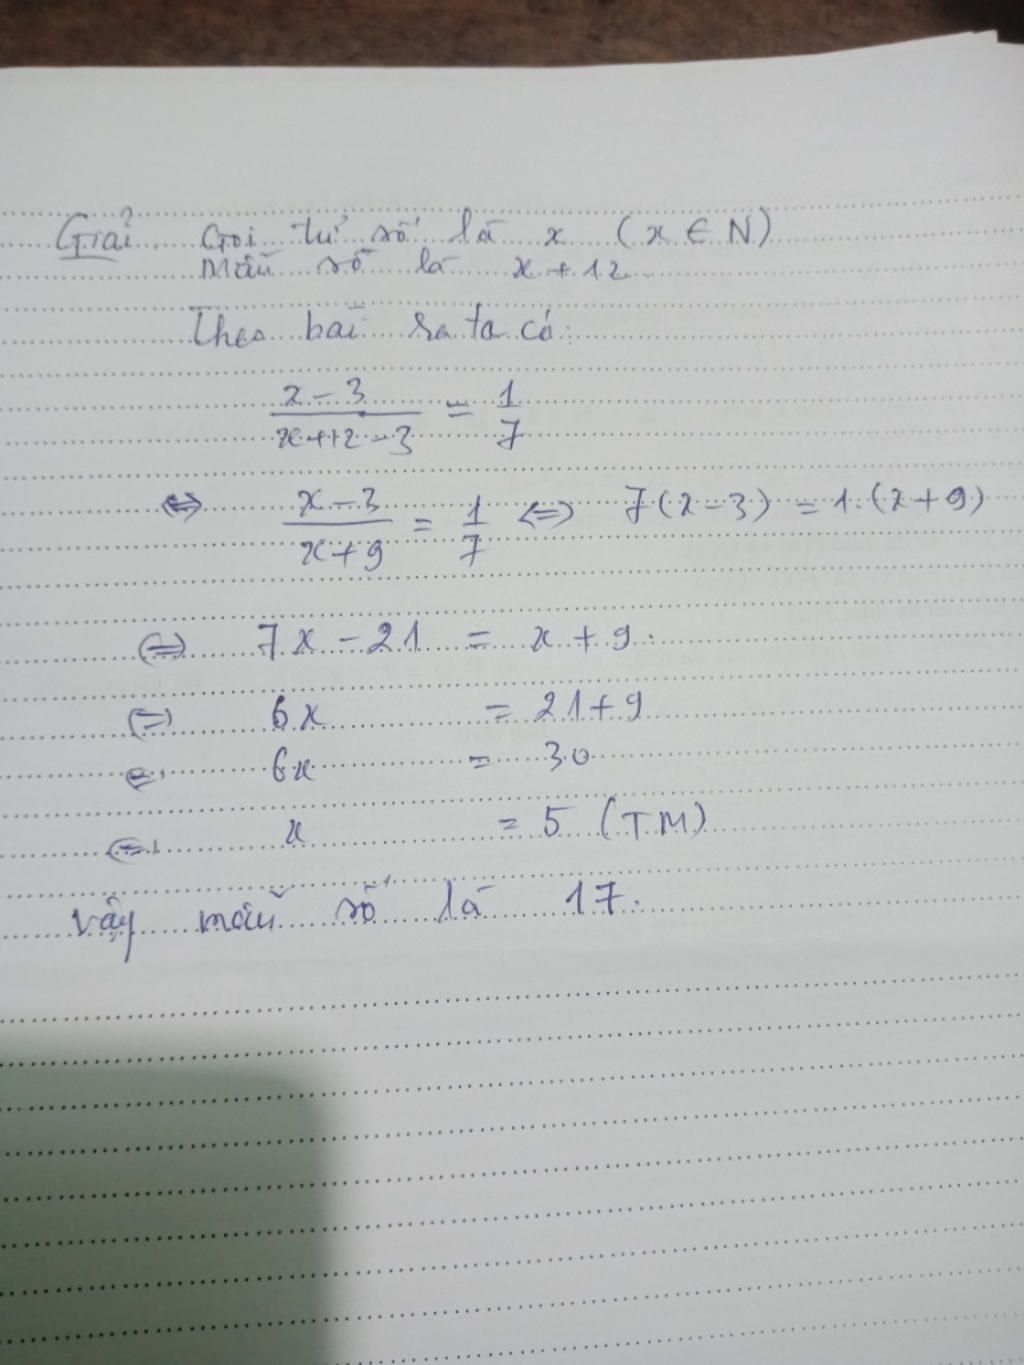 Giải. Gọi tử số là x (x ∈ N)
Mẫu số là x + 12
Theo bài ra ta có:
x - 3 / x + 12 - 3 = 1 / 7
⇔ x - 3 / x + 9 = 1 / 7 ⇔ 7(x - 3) = 1.(x + 9)
⇔ 7x - 21 = x + 9.
⇔ 6x = 21 + 9
⇔ 6x = 30
⇔ x = 5 (TM)
Vậy mẫu số là 17.